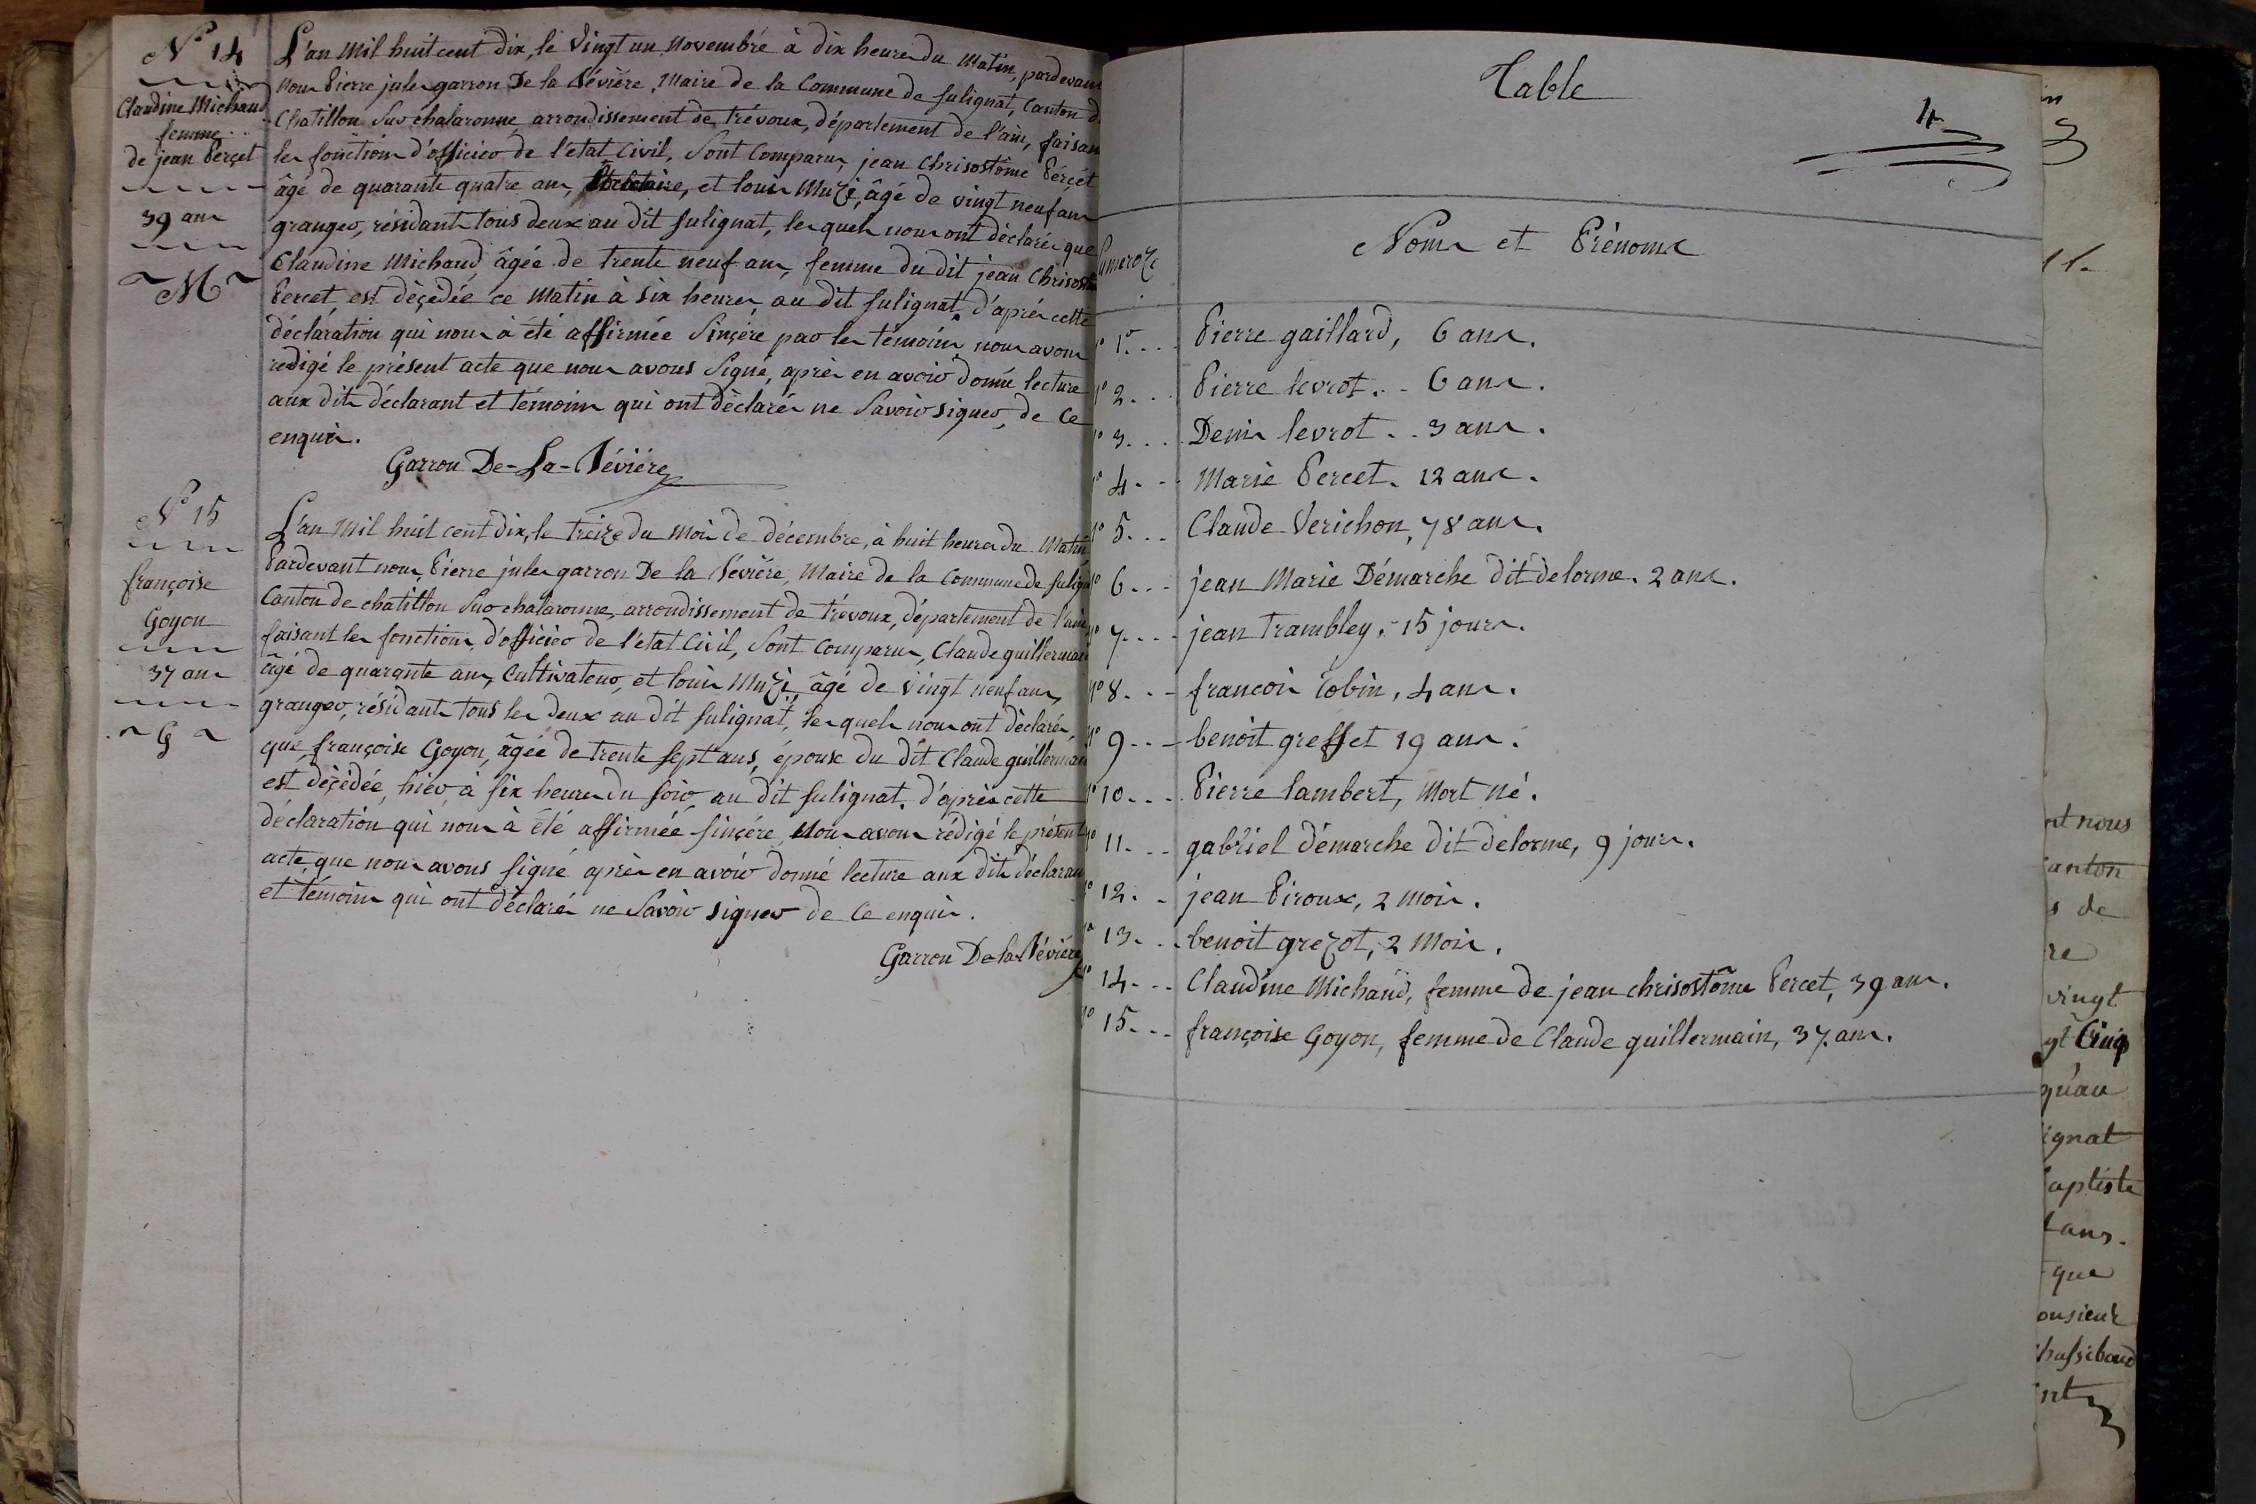 N° 14
Claudine Michaud
femme
de jean Perçet
39 ans
M
L'an mil huit cent dix, le vingt un novembre à dix heures du matin, pardevant
nous Pierre jules garron De la Bévière, Maire de la Commune de sulignat, Canton d
Chatillon sur chalaronne, arrondissement de trévoux, département de l'ain, faisan
les fonctions d'officier de l'état Civil, sont Comparus, jean Chrisostôme Perçét
âgé de quarante quatre ans, et louis Muzi, âgé de vingt neuf ans
granger, résidants tous deux au dit sulignat, lesquels nous ont déclarés que
Claudine Michaud âgée de trente neuf ans, femme du dit jean Chrisostôm
Percet, est décédée ce Matin à six heures au dit sulignat, d'après cette
déclaration qui nous à été affirmée sinçère par les témoins nous avons
redigé le présent acte que nous avons signé, après en avoir donné lecture
aux dits déclarant et témoins qui ont déclarés ne savoir signer, de ce
enquis.
Garron De-La-Bévière
N° 15
françoise
Goyon
37 ans
G
L'an mil huit cent dix, le treize du mois de décembre, à huit heures du Matin
Pardevant nous, Pierre jules garron De la Bévière, Maire de la Commune de sulign
Canton de chatillon sur chalaronne, arrondissement de trévoux, département de l'ain
faisant les fonctions d'officier de l'état Civil, sont Comparus, Claude guillermain
âgé de quarante ans, Cultivateur, et louis Muzi, âgé de vingt neuf ans,
granger, résidants tous les deux au dit sulignat, lesquels nous ont déclarés,
que françoise Goyon, âgée de trente sept ans, épouse du dit Claude guillermain
est décédée, hier à six heures du soir, au dit sulignat. d'après cette
déclaration qui nous à été affirmée sinçére, Nous avons rédigé le présent
acte que nous avons signé après en avoir donné lecture aux dits déclarant
et témoins qui ont déclarés ne savoir signer de ce enquis.
Garron De-la-Bévière
Table
4
Numeroz
Noms et Prénoms
n° 1er Pierre gaillard, 6 ans.
n° 2 Pierre levrot 6 ans.
n° 3 Denis levrot 3 ans.
n° 4 Marie Percet. 12 ans.
n° 5 Claude Verichon, 78 ans.
n° 6 jean Marie Démarche dit delorme. 2 ans.
n° 7 jean trambley, 15 jours.
n° 8 francois robin, 4 ans.
n° 9 benoit greffet 19 ans.
n° 10 Pierre lambert, Mort né.
n° 11 gabriel démarche dit delorme, 9 jours.
n° 12 jean Piroux, 2 mois.
n° 13 benoit grezot, 2 Mois.
n° 14 Claudine Michaud, femme de jean chrisostôme Percet, 39 ans.
n° 15 françoise Goyon, femme de Claude guillermain, 37 ans.
nt nous
anton
s de
re
vingt
gt Cinq
qu'au
ignat
aptiste
ans.
que
onsieur